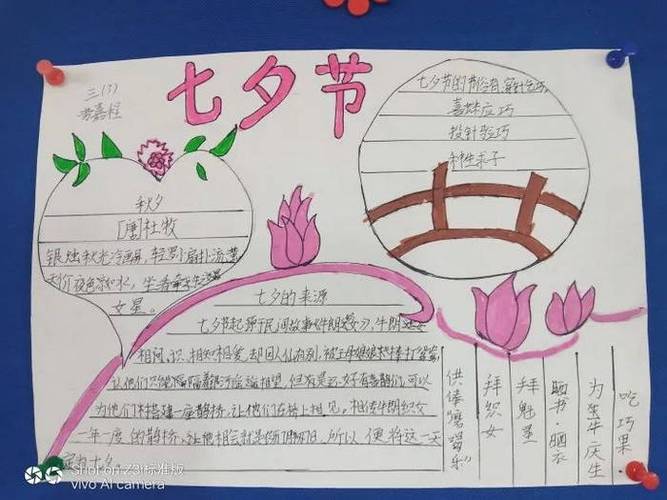 七夕节
三(7)
秋夕
[唐]杜牧
银烛秋光冷画屏,轻罗小扇扑流萤
天阶夜色凉如水,坐看牵牛织
女星。
七夕节的节俗有:穿针乞巧,
喜蛛应巧
投针验巧
种生求子
七夕的来源
七夕节起源于民间故事《牛郎织女》,牛郎
相知相爱
让他们只能隔着银河遥遥相望,但
为他们搭建一座鹊桥,让他们在桥上相见
一年一度的鹊桥,让他相会就是 所以便将这一天
定为七夕
供奉“磨喝乐”
拜织女
拜魁星
晒书·晒衣
为生牛庆生
吃巧果
Shot on Z3i标准版
vivo AI camera